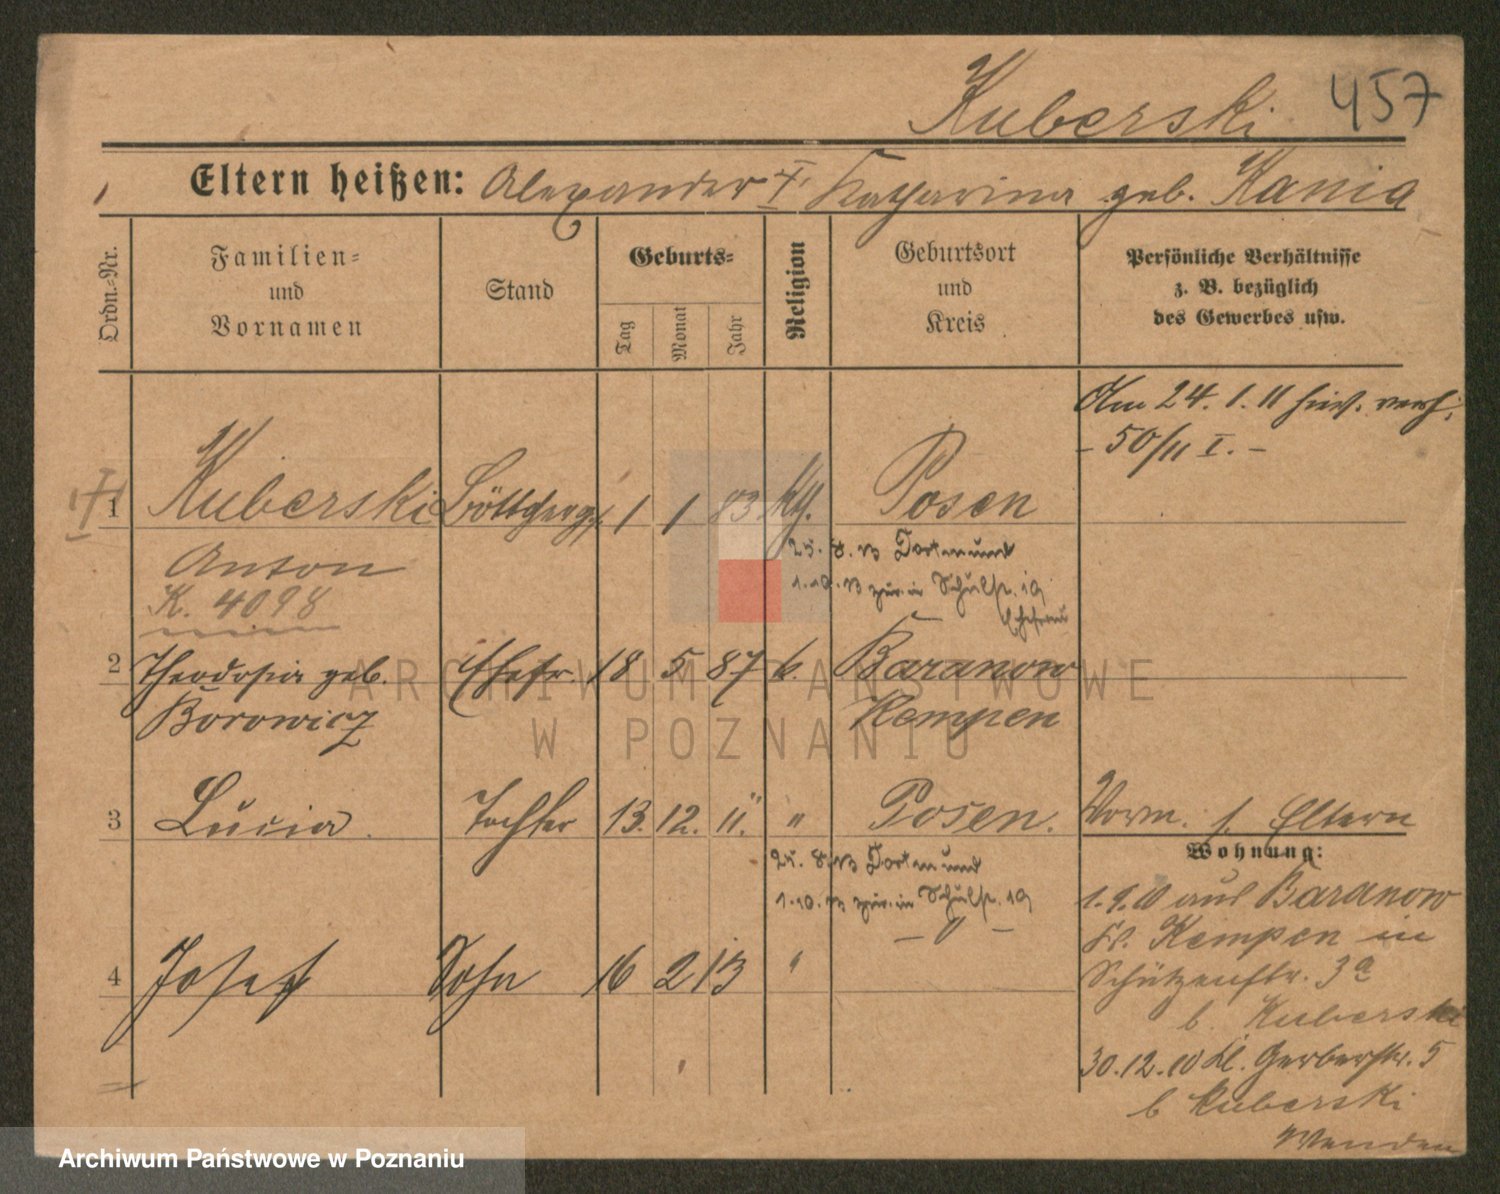 Kuberski 457
Eltern heißen: Alexander †, Katharina geb. Kania
Ordn.-Nr.
Familien-
und
Vornamen
Stand
Geburts-
Tag
Monat
Jahr
Religion
Geburtsort
und
Kreis
Persönliche Verhältnisse
z. B. bezüglich
des Gewerbes usw.
Am 24. 1. 11 hier. verh.
- 50/11 I. -
1 Kuberski Böttcherges. 1 1 83 kth. Posen
Anton
25. 8. 13 Dortmund
1.10.13 zur. in Schulstr. 19
Ehefrau
K. 4098
2 Theodosia geb. Ehefr. 18 5 87 k. Baranow
Borowicz Kempen
3 Lucia. Tochter 13. 12. 11. " Posen. Vorm. s. Eltern
Wohnung:
25. 8. 13 Dortmund
1.10.13 zur. in Schulstr. 19
- " -
4 Josef Sohn 16 2 13 "
1.9.10 aus Baranow
Kr. Kempen in
Schützenstr. 3a
b. Kuberski
30.12.10 Kl. Gerberstr. 5
b Kuberski
Wenden
ARCHIWUM PAŃSTWOWE
W POZNANIU
Archiwum Państwowe w Poznaniu